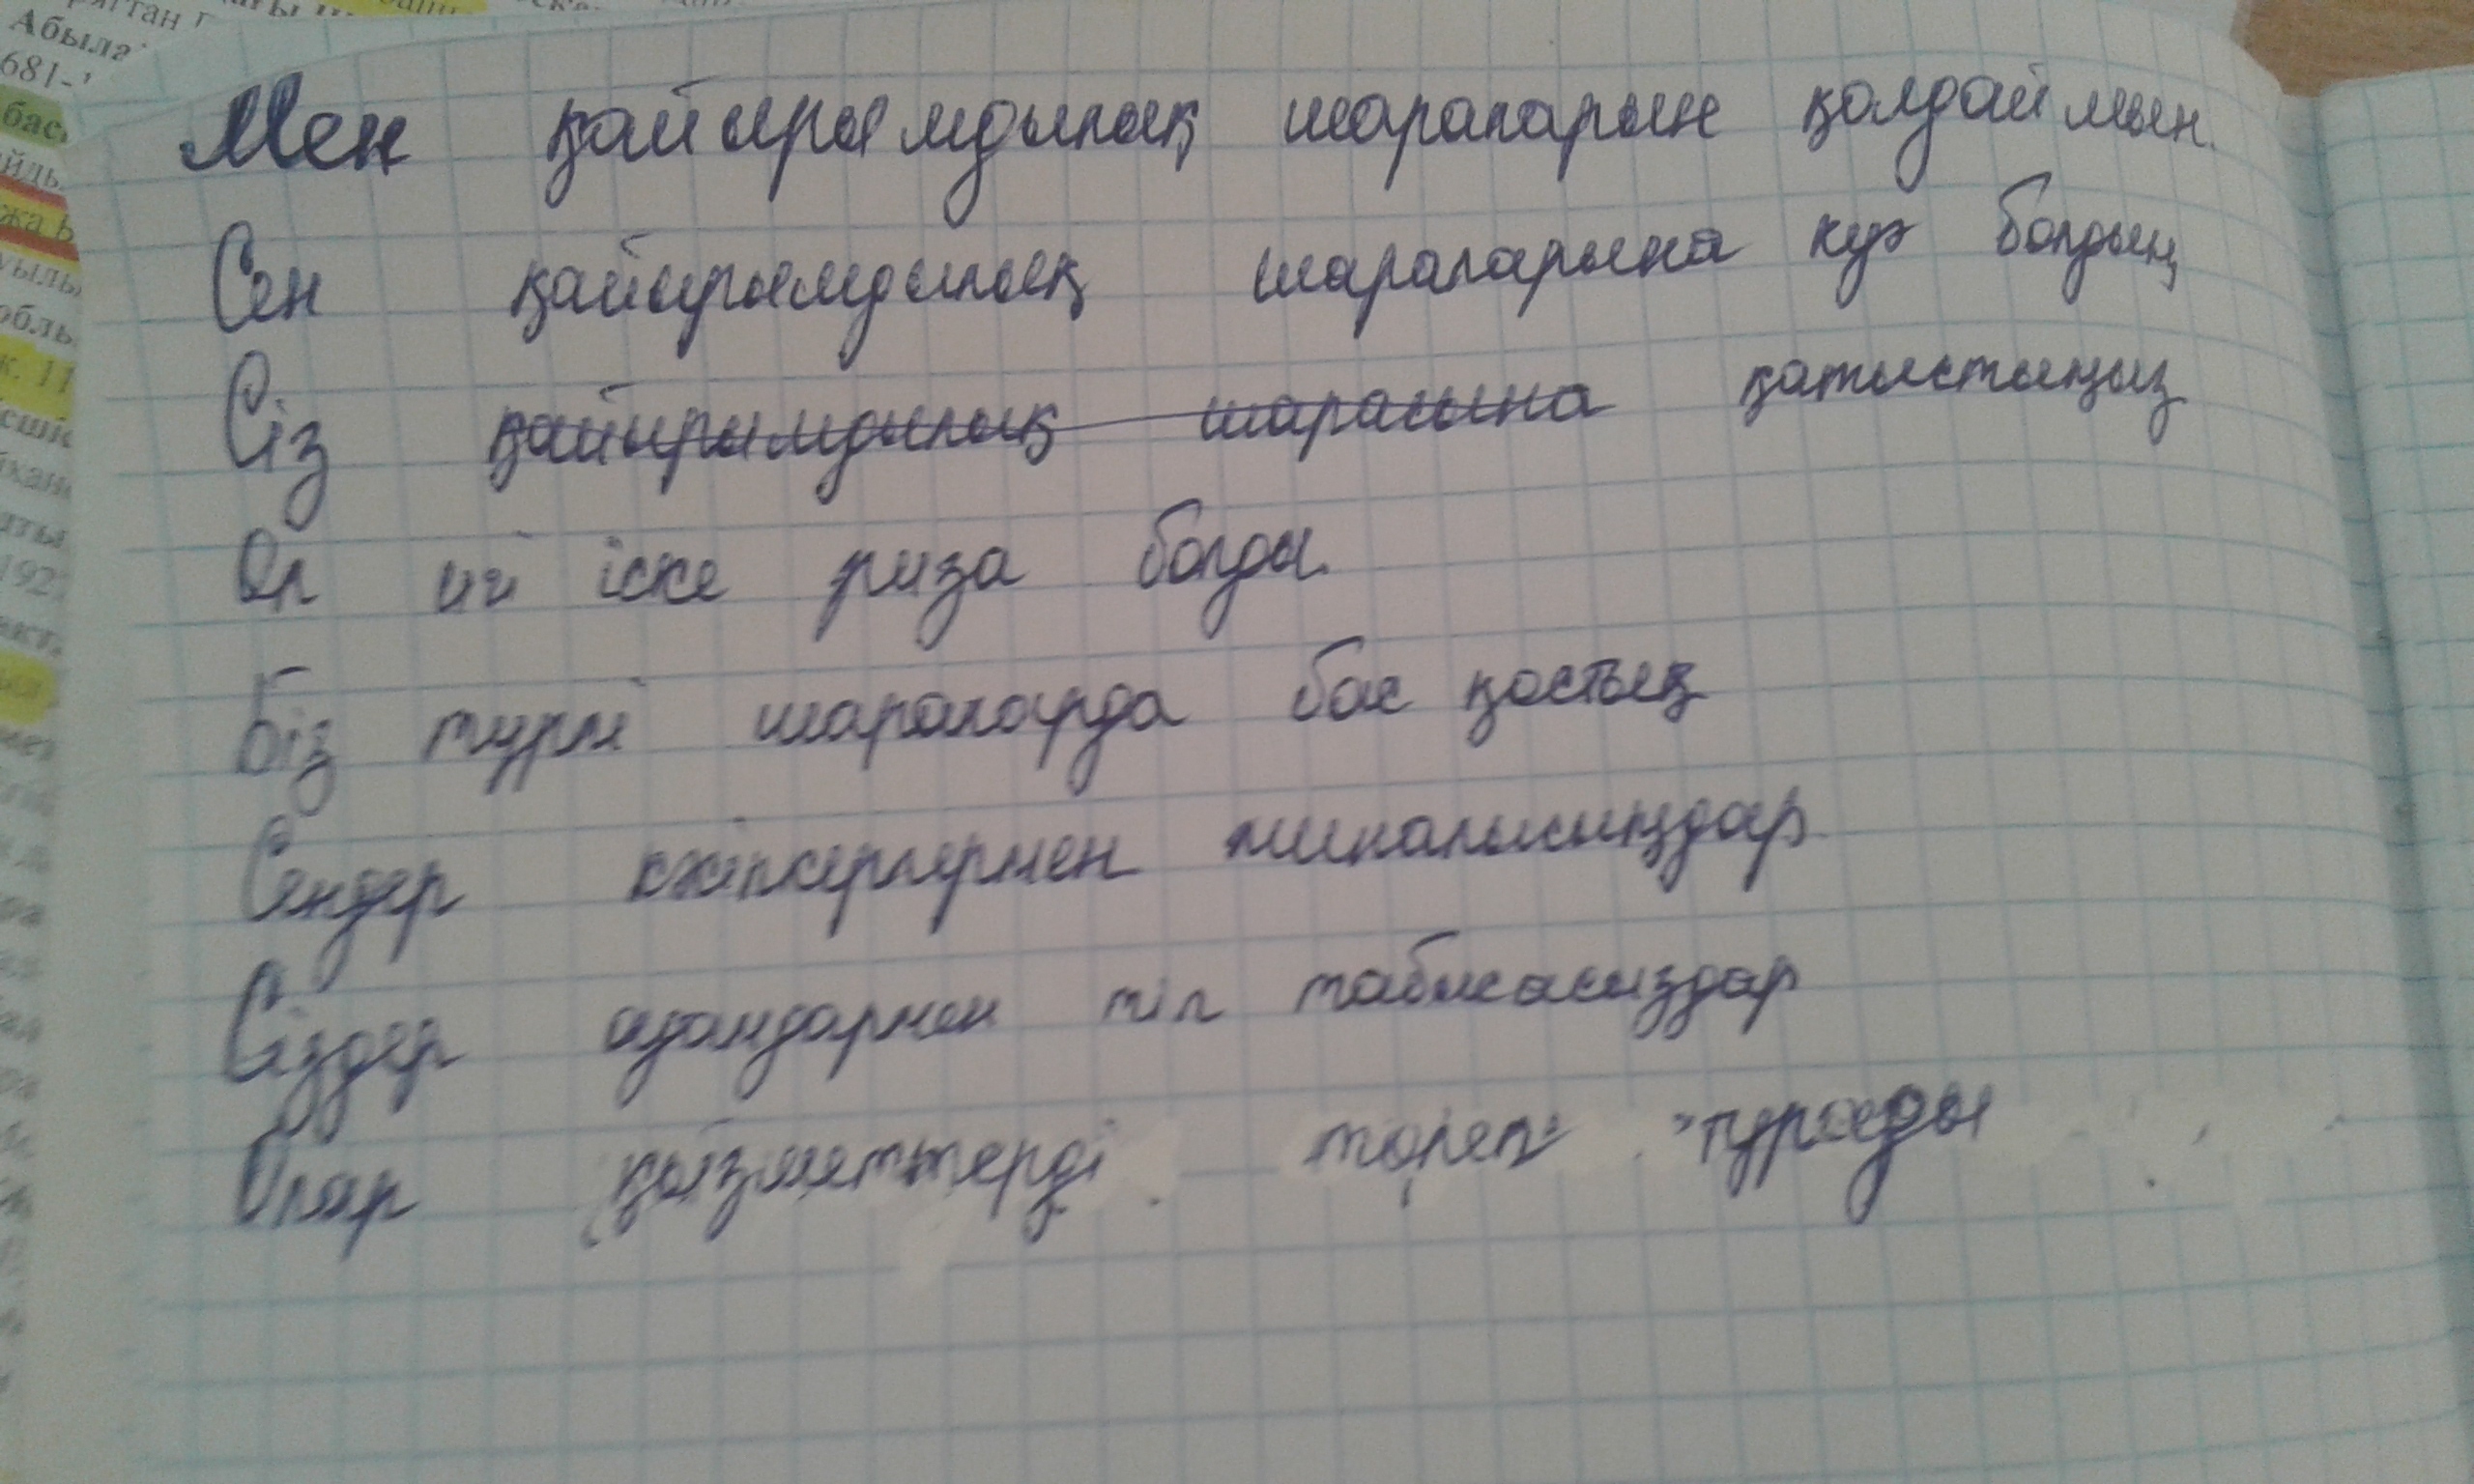 Абыла
681-
бас
жа Б
обль
к. 11
192
Мен қайырымдылық шараларын қолдаймын.
Сен қайырымдылық шараларына куә болдың
Сіз қайырымдылық шарасына қатыстыңыз
Ол игі іске риза болды.
Біз түрлі шараларда бас қостық
Сендер кәсіпкерлермен
Сіздер адамдармен тіл табысасыздар
Олар қызметтерді төлеп тұрады